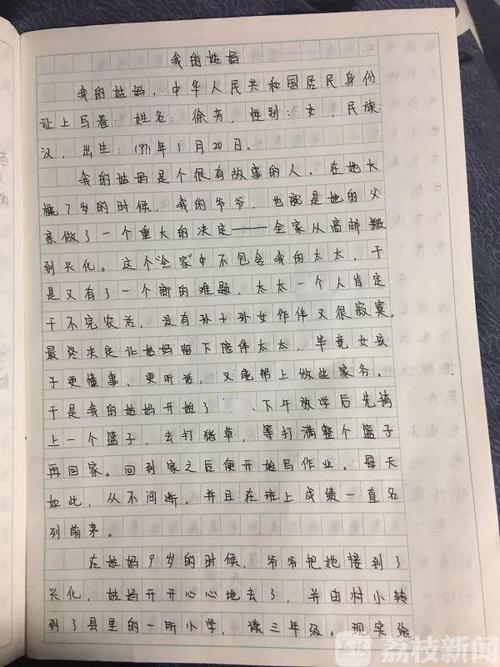 我的姑妈
我的姑妈，中华人民共和国居民身份
证上写着：姓名：徐芳，性别：女，民族：
汉，出生：1971年1月20日。
我的姑妈是个很有故事的人。在她大
概7岁的时候，我的爷爷，也就是她的父
亲做了一个重大的决定——全家从高邮搬
到兴化。这个“全家”中不包含我的太太，于
是又有了一个新的难题，太太一个人肯定
干不完农活，没有孙子孙女作伴又很寂寞。
最终决定让姑妈留下陪伴太太，毕竟女孩
子更懂事、更听话，又能帮上做些家务。
于是我的姑妈开始了 、下午放学后先
上一个篮子，去打猪草，等打满整个篮子
再回家。回到家之后便开始写作业。每天
如此，从不间断。并且在班上成绩一直名
列前茅。
在姑妈9岁的时候，爷爷把她接到了
兴化，姑妈开开心心地去了，并由村小转
到了县里的一所小学，读三年级。现实给
荔枝新闻